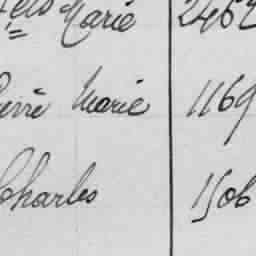 Marie 2462
Pierre Marie 1169
Charles 1506